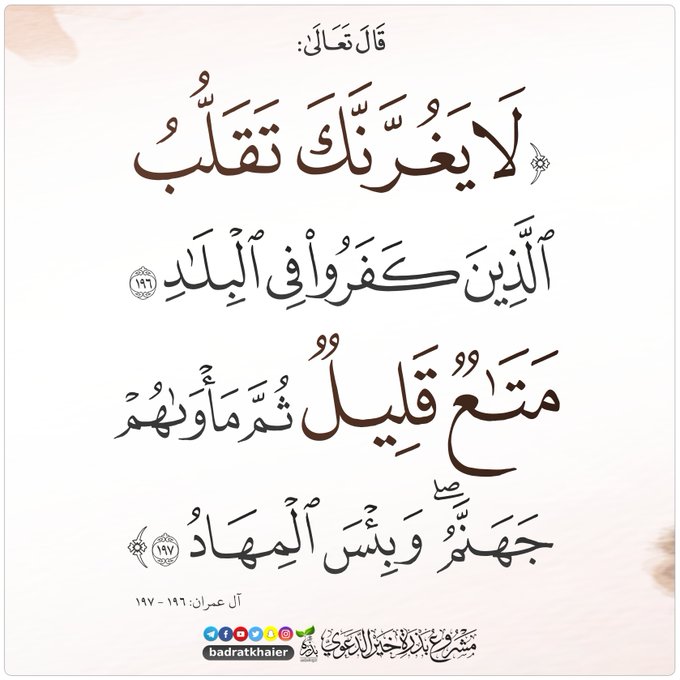 قَالَ تَعَالَىٰ:
﴿لَا يَغُرَّنَّكَ تَقَلُّبُ
ٱلَّذِينَ كَفَرُوا۟ فِى ٱلْبِلَـٰدِ ١٩٦
مَتَـٰعٌ قَلِيلٌ ثُمَّ مَأْوَىٰهُمْ
جَهَنَّمُ ۖ وَبِئْسَ ٱلْمِهَادُ ١٩٧﴾
آل عمران: ١٩٦ - ١٩٧
مشروع بذرة خير الدعوي
بذرة
badratkhaier